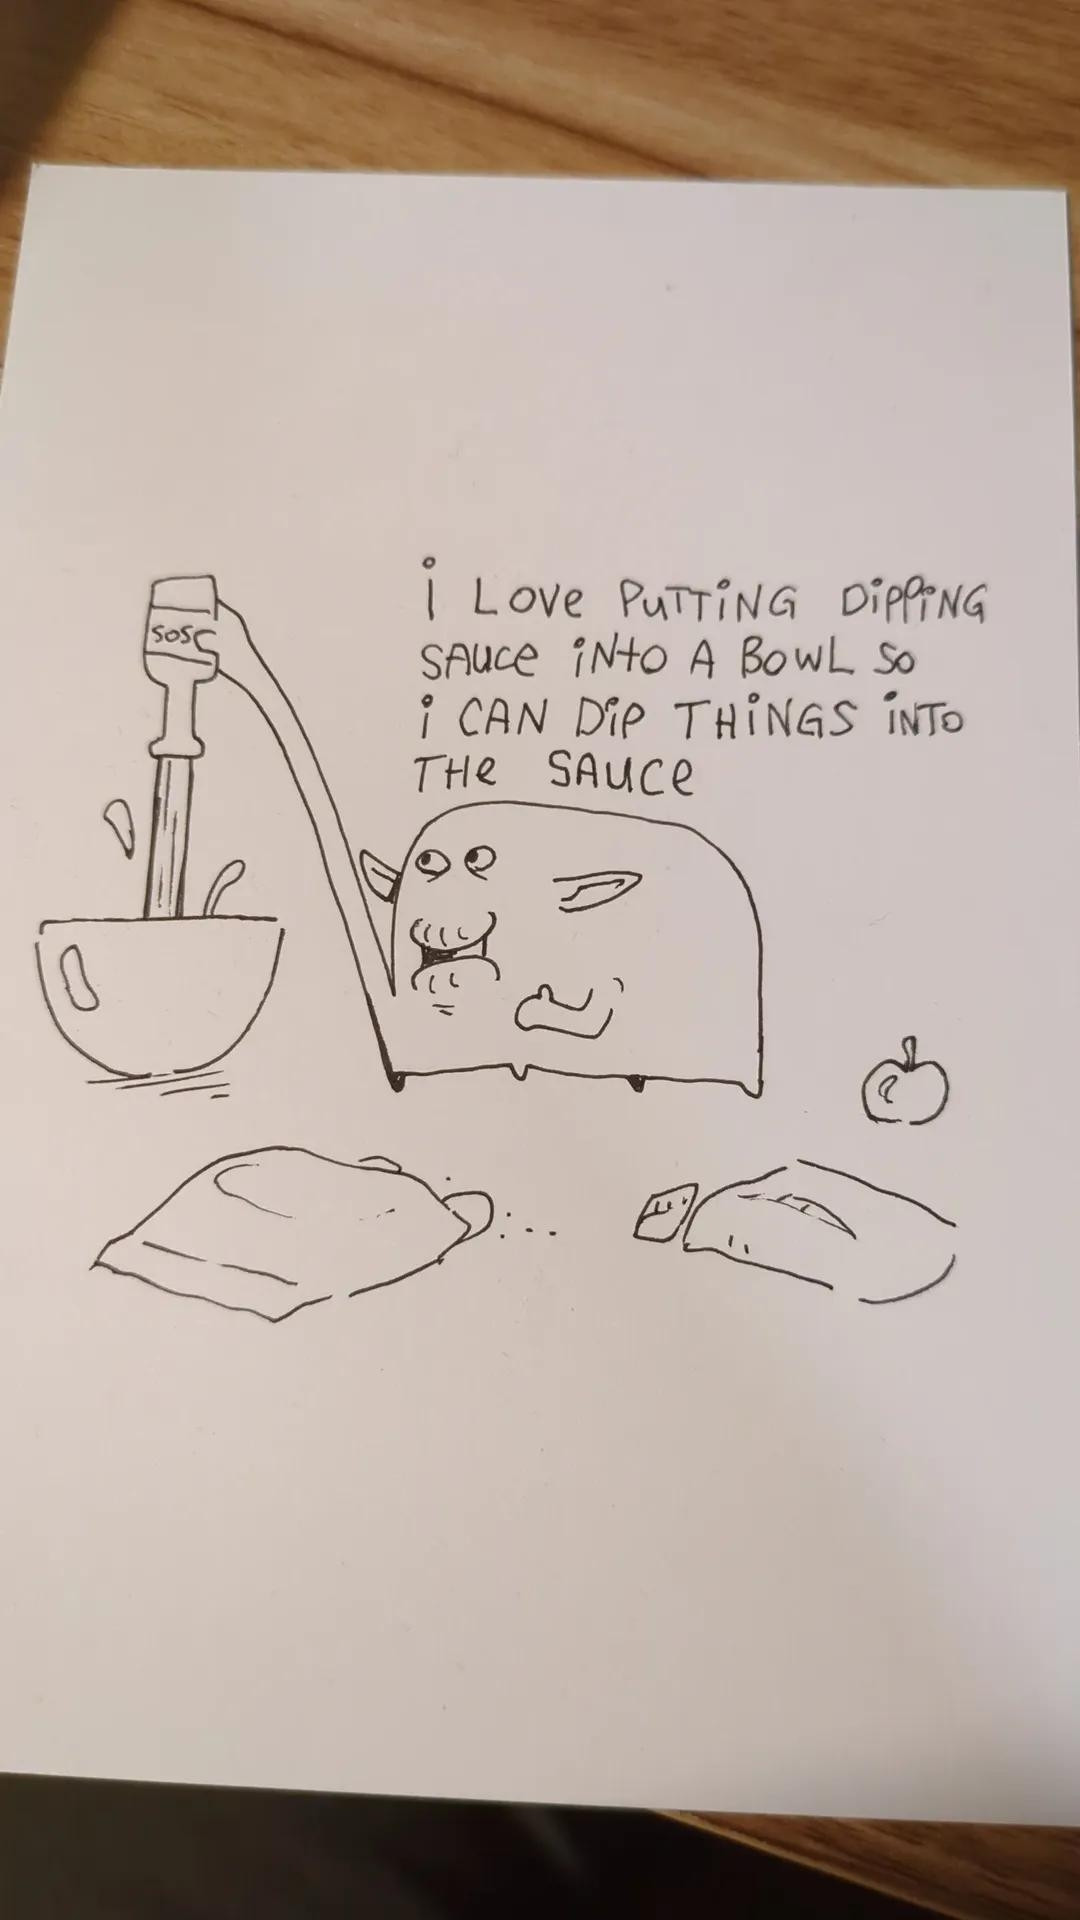 i LOVe PUTTiNG DiPPiNG
SAUCe iNtO A BOWL SO
i CAN DiP THiNGS iNTO
THe SAUCe
SOSC